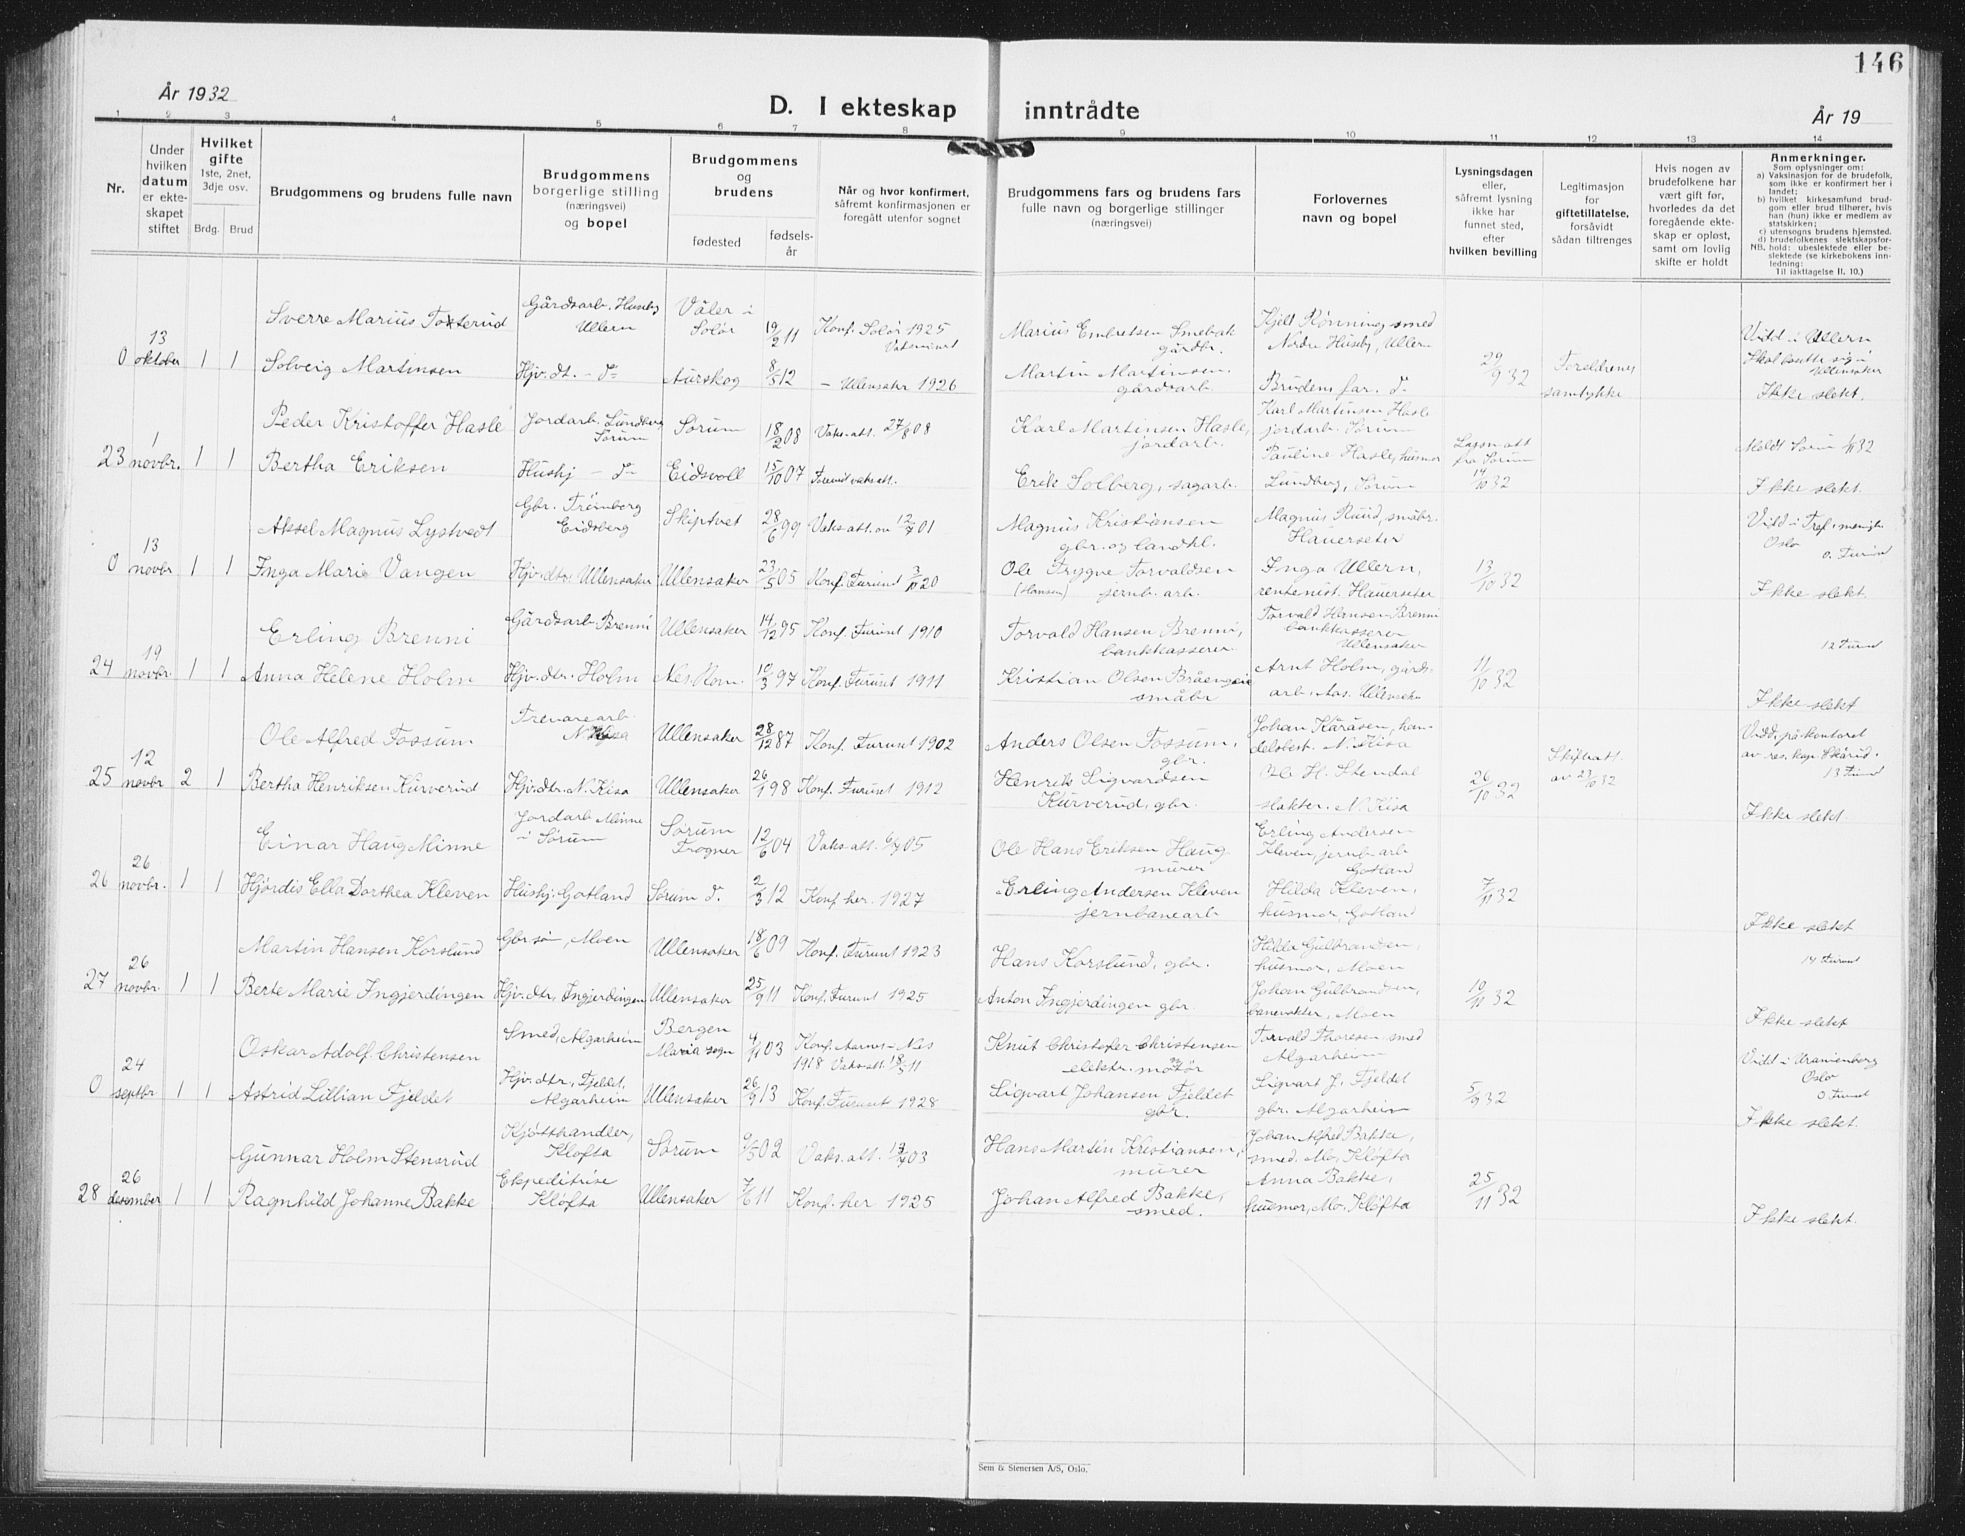 146
År 1932
D. I ekteskap inntrådte
År 19
1 2 3 4 5 6 7 8 9 10 11 12 13 14
Nr.
Under hvilken datum er ekteskapet stiftet
Hvilket gifte
1ste, 2net, 3dje osv.
Brdg. Brud
Brudgommens og brudens fulle navn
Brudgommens borgerlige stilling (næringsvei) og bopel
Brudgommens og brudens
fødested
fødsels-år
Når og hvor konfirmert, såfremt konfirmasjonen er foregått utenfor sognet
Brudgommens fars og brudens fars fulle navn og borgerlige stillinger (næringsvei)
Forlovernes navn og bopel
Lysningsdagen eller, såfremt lysning ikke har funnet sted, efter hvilken bevilling
Legitimasjon for giftetillatelse, forsåvidt sådan tiltrenges
Hvis nogen av brudefolkene har vært gift før, hvorledes da det foregående ekteskap er opløst, samt om lovlig skifte er holdt
Anmerkninger.
Som oplysninger om:
a) Vaksinasjon for de brudefolk, som ikke er konfirmert her i landet;
b) hvilket kirkesamfund brudgom eller brud tilhører, hvis han (hun) ikke er medlem av statskirken;
c) utensogns brudens hjemsted.
d) brudefolkenes slektskapsforhold: ubeslektede eller beslektede (se kirkebokens innledning:
NB.
Til iakttagelse II. 10.)
Sverre Marius Gårdsarb. Huseby Ullern Våler i Solør 19/2 11 Konf. Solør 1925 Marius Embretsen gårdbr. Kjell Rønning, smed Nordre Huseby, Ullern Viid i Ullern
0 13 oktober 1 1 Solveig Martinsen Hjv. dt. - d= Aurskog 8/5 12 - Ullensaker 1926 Martin Martinsen, gårdsarb. Brudens far. d= 29/9 32 Foreldrenes samtykke Ikke slekt.
Peder Kristoffer Hasle Jordarb. Lundberg Sørum Sørum 18/2 08 Vaks.att. 27/8 08 Karl Martinsen Hasle, jordarb. Karl Martinsen Hasle jordarb. Sørum
23 1 novbr. 1 1 Bertha Eriksen Hushj - d= Eidsvoll 15/10 07 Erik Solberg, sagarb. Pauline Hasle, husmor Lundberg, Sørum Lysn. att fra Sørum 14/10 32 Ikke slekt.
Aksel Magnus Lystvedt Gbr. Trømborg Eidsberg Skiptvet 28/6 99 Vaks.att. av 12/7 01 Magnus Kristiansen gbr. og landhl. Magnus Ruud, småbr. Hauerseter Viid i Oslo
0 13 novbr 1 1 Inga Marie Vangen Hjv. dtr. Ullensaker Ullensaker 23/5 05 Konf. Furuset 3/10 20 Ole Trygve Torvaldsen (Hansen) jernb. arb. Inga Ullern, rentenist. Hauerseter 13/10 32 Ikke slekt.
Erling Brenni Gårdsarb Brenni Ullensaker 14/12 95 Konf. Furuset 1910 Torvald Hansen Brenni, bankkasserer Torvald Hansen Brenni bankkasserer Ullensaker
24 19 novbr. 1 1 Anna Helene Holm Hjv. dtr. Holm Nes, Rom. 10/3 97 Konf. Furuset 1911 Kristian Olsen småbr Arnt Holm, gårdsarb. Aas. Ullensaker 11/10 32 Ikke slekt
Ole Alfred Fossum Trevarearb. N. Kisa Ullensaker 28/12 87 Konf. Furuset 1902 Anders Olsen Fossum, gbr. Johan Kåråsen, handelsbest. N. Kisa Viid, på kontoret av res. kap. Skårud.
25 12 novbr 2 1 Bertha Henriksen Kurverud Hjv. dtr. N. Kisa Ullensaker 26/1 98 Konf. Furuset 1912 Henrik Sigvardsen Kurverud, gbr. Ole H. Stendal slakter. N. Kisa 26/10 32 Skifteatt. av 23/10 32 Ikke slekt.
Einar Haug Minne Jordarb Minne i Sørum Sørum Frogner 12/6 04 Vaks.att. 6/7 05 Ole Hans Eriksen Haug murer Erling Andersen Kleven, jernb. arb Gotland
26 26 novbr. 1 1 Hjørdis Ella Dorthea Kleven Hushj. Gotland Sørum d= 2/3 12 Konf. her. 1927 Erling Andersen Kleven jernbanearb Hilda Kleven, husmor, Gotland 7/11 32 Ikke slekt
Martin Hansen Korslund Gbr. søn, Moen Ullensaker 18/6 09 Konf. Furuset 1923 Hans Korslund, gbr. Hilla Gulbrandsen, husmor, Moen
27 26 novbr. 1 1 Berte Marie Ingjerdingen Hjv. dtr, Ingjerdingen Ullensaker 25/9 11 Konf. Furuset 1925 Anton Ingjerdingen gbr. Johan Gulbrandsen, banevokter, Moen 10/11 32 Ikke slekt
Oskar Adolf. Christensen Smed, Algarheim Bergen Maria sogn 4/11 03 Konf. Aarnes - Nes 1918 Vaks.att. 18/5 11 Knut Christofer Christensen elektr. montør Torvald Thoresen, smed Algarheim Viid i Uranienborg Oslo
0 24 septbr 1 1 Astrid Lillian Fjeldet Hjv. dtr, Fjeldet, Algarheim Ullensaker 26/9 13 Konf. Furuset 1928 Sigvart Johansen Fjeldet gbr. Sigvart J. Fjeldet gbr. Algarheim 5/9 32 Ikke slekt.
Gunnar Holm Stensrud Kjøtthandler, Kløfta Sørum 9/5 02 Vaks.att. 03 Hans Martin Kristiansen, murer Johan Alfred Bakke, smed. Mo, Kløfta
28 26 desember 1 1 Ragnhild Johanne Bakke Ekspeditrise Kløfta Ullensaker 7/6 11 Konf. her 1925 Johan Alfred Bakke, smed. Anna Bakke, husmor, Mo, Kløfta 25/11 32 Ikke slekt.
Sem & Stenersen A/S, Oslo.